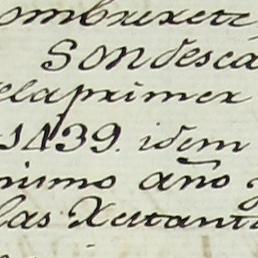 ombrexere
son desca
ela primer
1439. idem
nismo año y
las Xertant